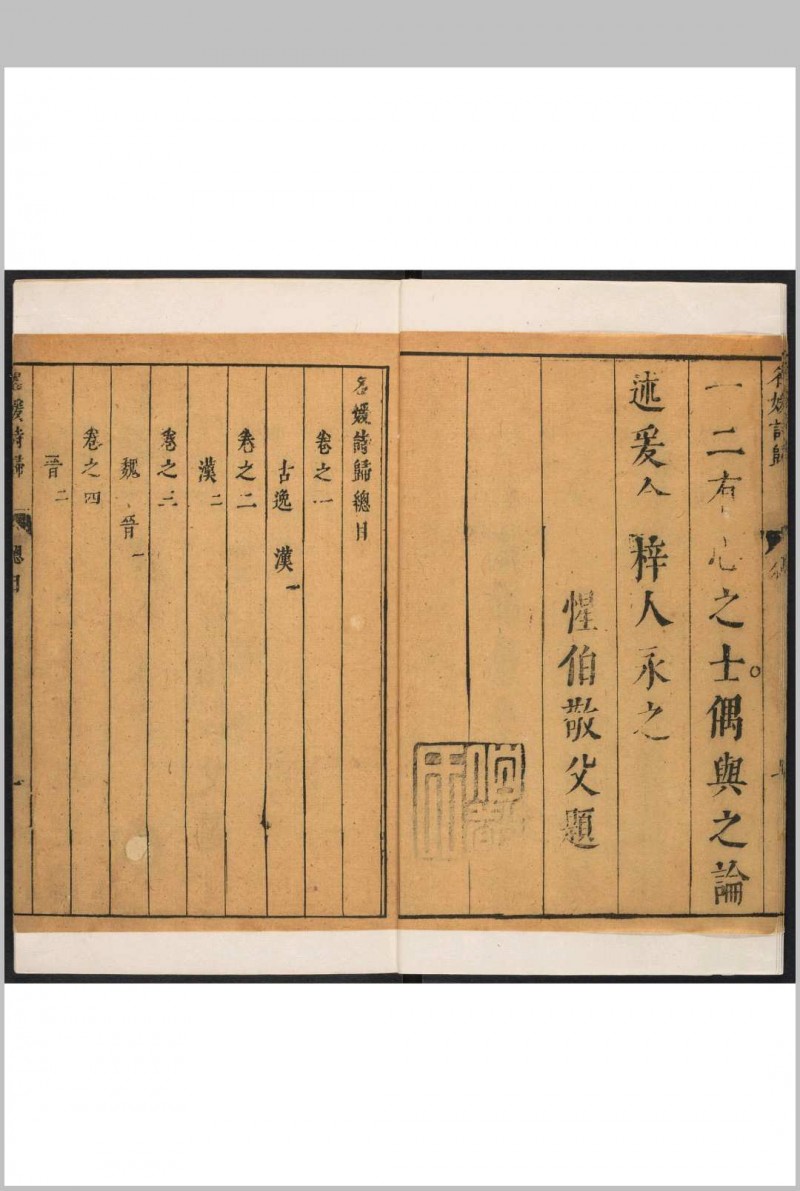 名媛詩歸
一二有心之士偶與之論
述爰命梓人永之
惺伯敬父題
名媛詩歸總目
卷之一
古逸 漢一
卷之二
漢二
卷之三
魏 晉一
卷之四
晉二
名媛詩歸 總目 一